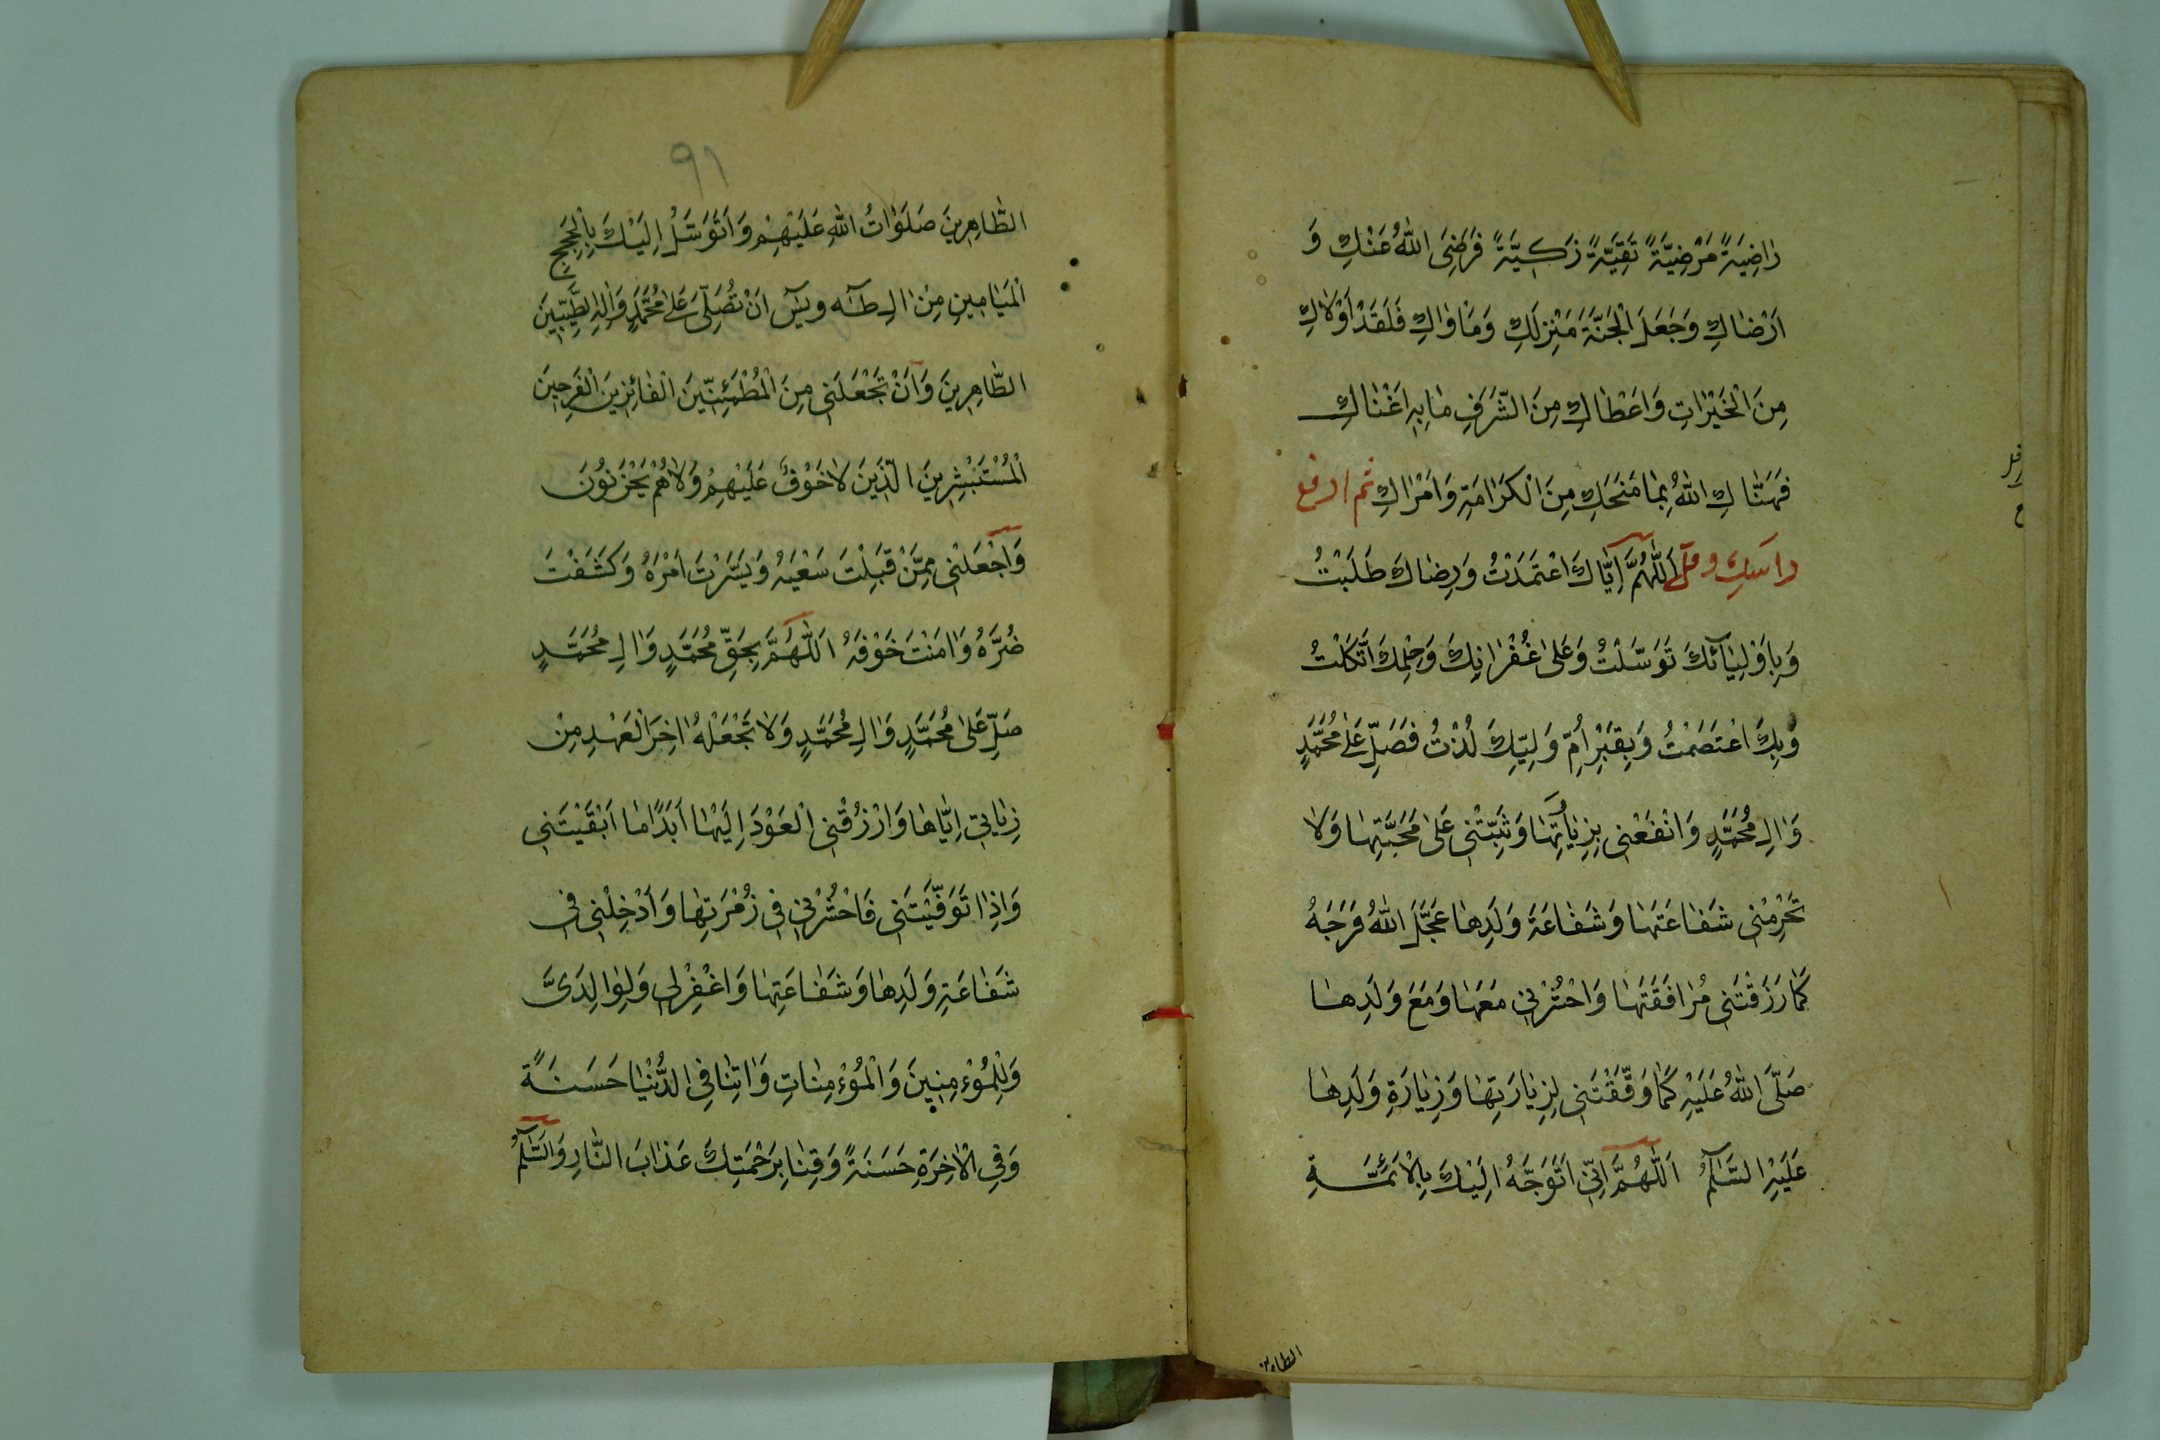 رٰاضِيَةً مَرْضِيَّةً تَقِيَّةً زَكِيَّةً فَرَضِىَ اللّٰهُ عَنْكِ وَ
اَرْضٰاكِ وَجَعَلَ الْجَنَّةَ مَنْزِلَكِ وَمَاْوٰاكِ فَلَقَدْ اَوْلٰاكِ
مِنَ الْخَيْرٰاتِ وَاَعْطٰاكِ مِنَ الشَّرَفِ مٰا بِهِ اَغْنٰاكِ
فَهَنّٰاكِ اللّٰهُ بِمٰا مَنَحَكِ مِنَ الْكَرٰامَةِ وَاَمْرٰاكِ ثم ارفع
راسك وقل اَللّٰهُمَّ اِيّٰاكَ اعْتَمَدْتُ وَرِضٰاكَ طَلَبْتُ
وَبِاَوْلِيٰآئِكَ تَوَسَّلْتُ وَعَلىٰ غُفْرٰانِكَ وَحِلْمِكَ اتَّكَلْتُ
وَبِكَ اعْتَصَمْتُ وَبِقَبْرِ اُمِّ وَلِيِّكَ لُذْتُ فَصَلِّ عَلىٰ مُحَمَّدٍ
وَاٰلِ مُحَمَّدٍ وَانْفَعْنى بِزِيٰارَتِهٰا وَثَبِّتْنى عَلىٰ مَحَبَّتِهٰا وَلٰا
تَحْرِمْنى شَفٰاعَتَهٰا وَشَفٰاعَةَ وَلَدِهٰا عَجَّلَ اللّٰهُ فَرَجَهُ
كَمٰا رَزَقْتَنى مُرٰافَقَتَهٰا وَاحْشُرْنى مَعَهٰا وَمَعَ وَلَدِهٰا
صَلَّى اللّٰهُ عَلَيْهِ كَمٰا وَفَّقْتَنى لِزِيٰارَتِهٰا وَزِيٰارَةِ وَلَدِهٰا
عَلَيْهِ السَّلٰامُ اَللّٰهُمَّ اِنّى اَتَوَجَّهُ اِلَيْكَ بِالْاَئِمَّةِ
الطاهرين
٩١
الطّٰاهِرِينَ صَلَوٰاتُ اللّٰهِ عَلَيْهِمْ وَاَتَوَسَّلُ اِلَيْكَ بِالْحُجَجِ
الْمَيٰامِينِ مِنْ اٰلِ طٰه ويس اَنْ تُصَلِّىَ عَلىٰ مُحَمَّدٍ وَاٰلِهِ الطَّيِّبِينَ
الطّٰاهِرِينَ وَاَنْ تَجْعَلَنى مِنَ الْمُطْمَئِنِّينَ الْفٰائِزِينَ الْفَرِحِينَ
الْمُسْتَبْشِرِينَ الَّذِينَ لٰا خَوْفٌ عَلَيْهِمْ وَلٰا هُمْ يَحْزَنُونَ
وَاجْعَلْنى مِمَّنْ قَبِلْتَ سَعْيَهُ وَيَسَّرْتَ اَمْرَهُ وَكَشَفْتَ
ضُرَّهُ وَاٰمَنْتَ خَوْفَهُ اَللّٰهُمَّ بِحَقِّ مُحَمَّدٍ وَاٰلِ مُحَمَّدٍ
صَلِّ عَلىٰ مُحَمَّدٍ وَاٰلِ مُحَمَّدٍ وَلٰا تَجْعَلْهُ اٰخِرَ الْعَهْدِ مِنْ
زِيٰارَتى اِيّٰاهٰا وَارْزُقْنى الْعَوْدَ اِلَيْهٰا اَبَدًا مٰا اَبْقَيْتَنى
وَاِذٰا تَوَفَّيْتَنى فَاحْشُرْنى فى زُمْرَتِهٰا وَاَدْخِلْنى فى
شَفٰاعَةِ وَلَدِهٰا وَشَفٰاعَتِهٰا وَاغْفِرْلى وَلِوٰالِدَىَّ
وَلِلْمُؤْمِنِينَ وَالْمُؤْمِنٰاتِ وَاٰتِنٰا فِى الدُّنْيٰا حَسَنَةً
وَفِى الْاٰخِرَةِ حَسَنَةً وَقِنٰا بِرَحْمَتِكَ عَذٰابَ النّٰارِ وَالسَّلٰامُ